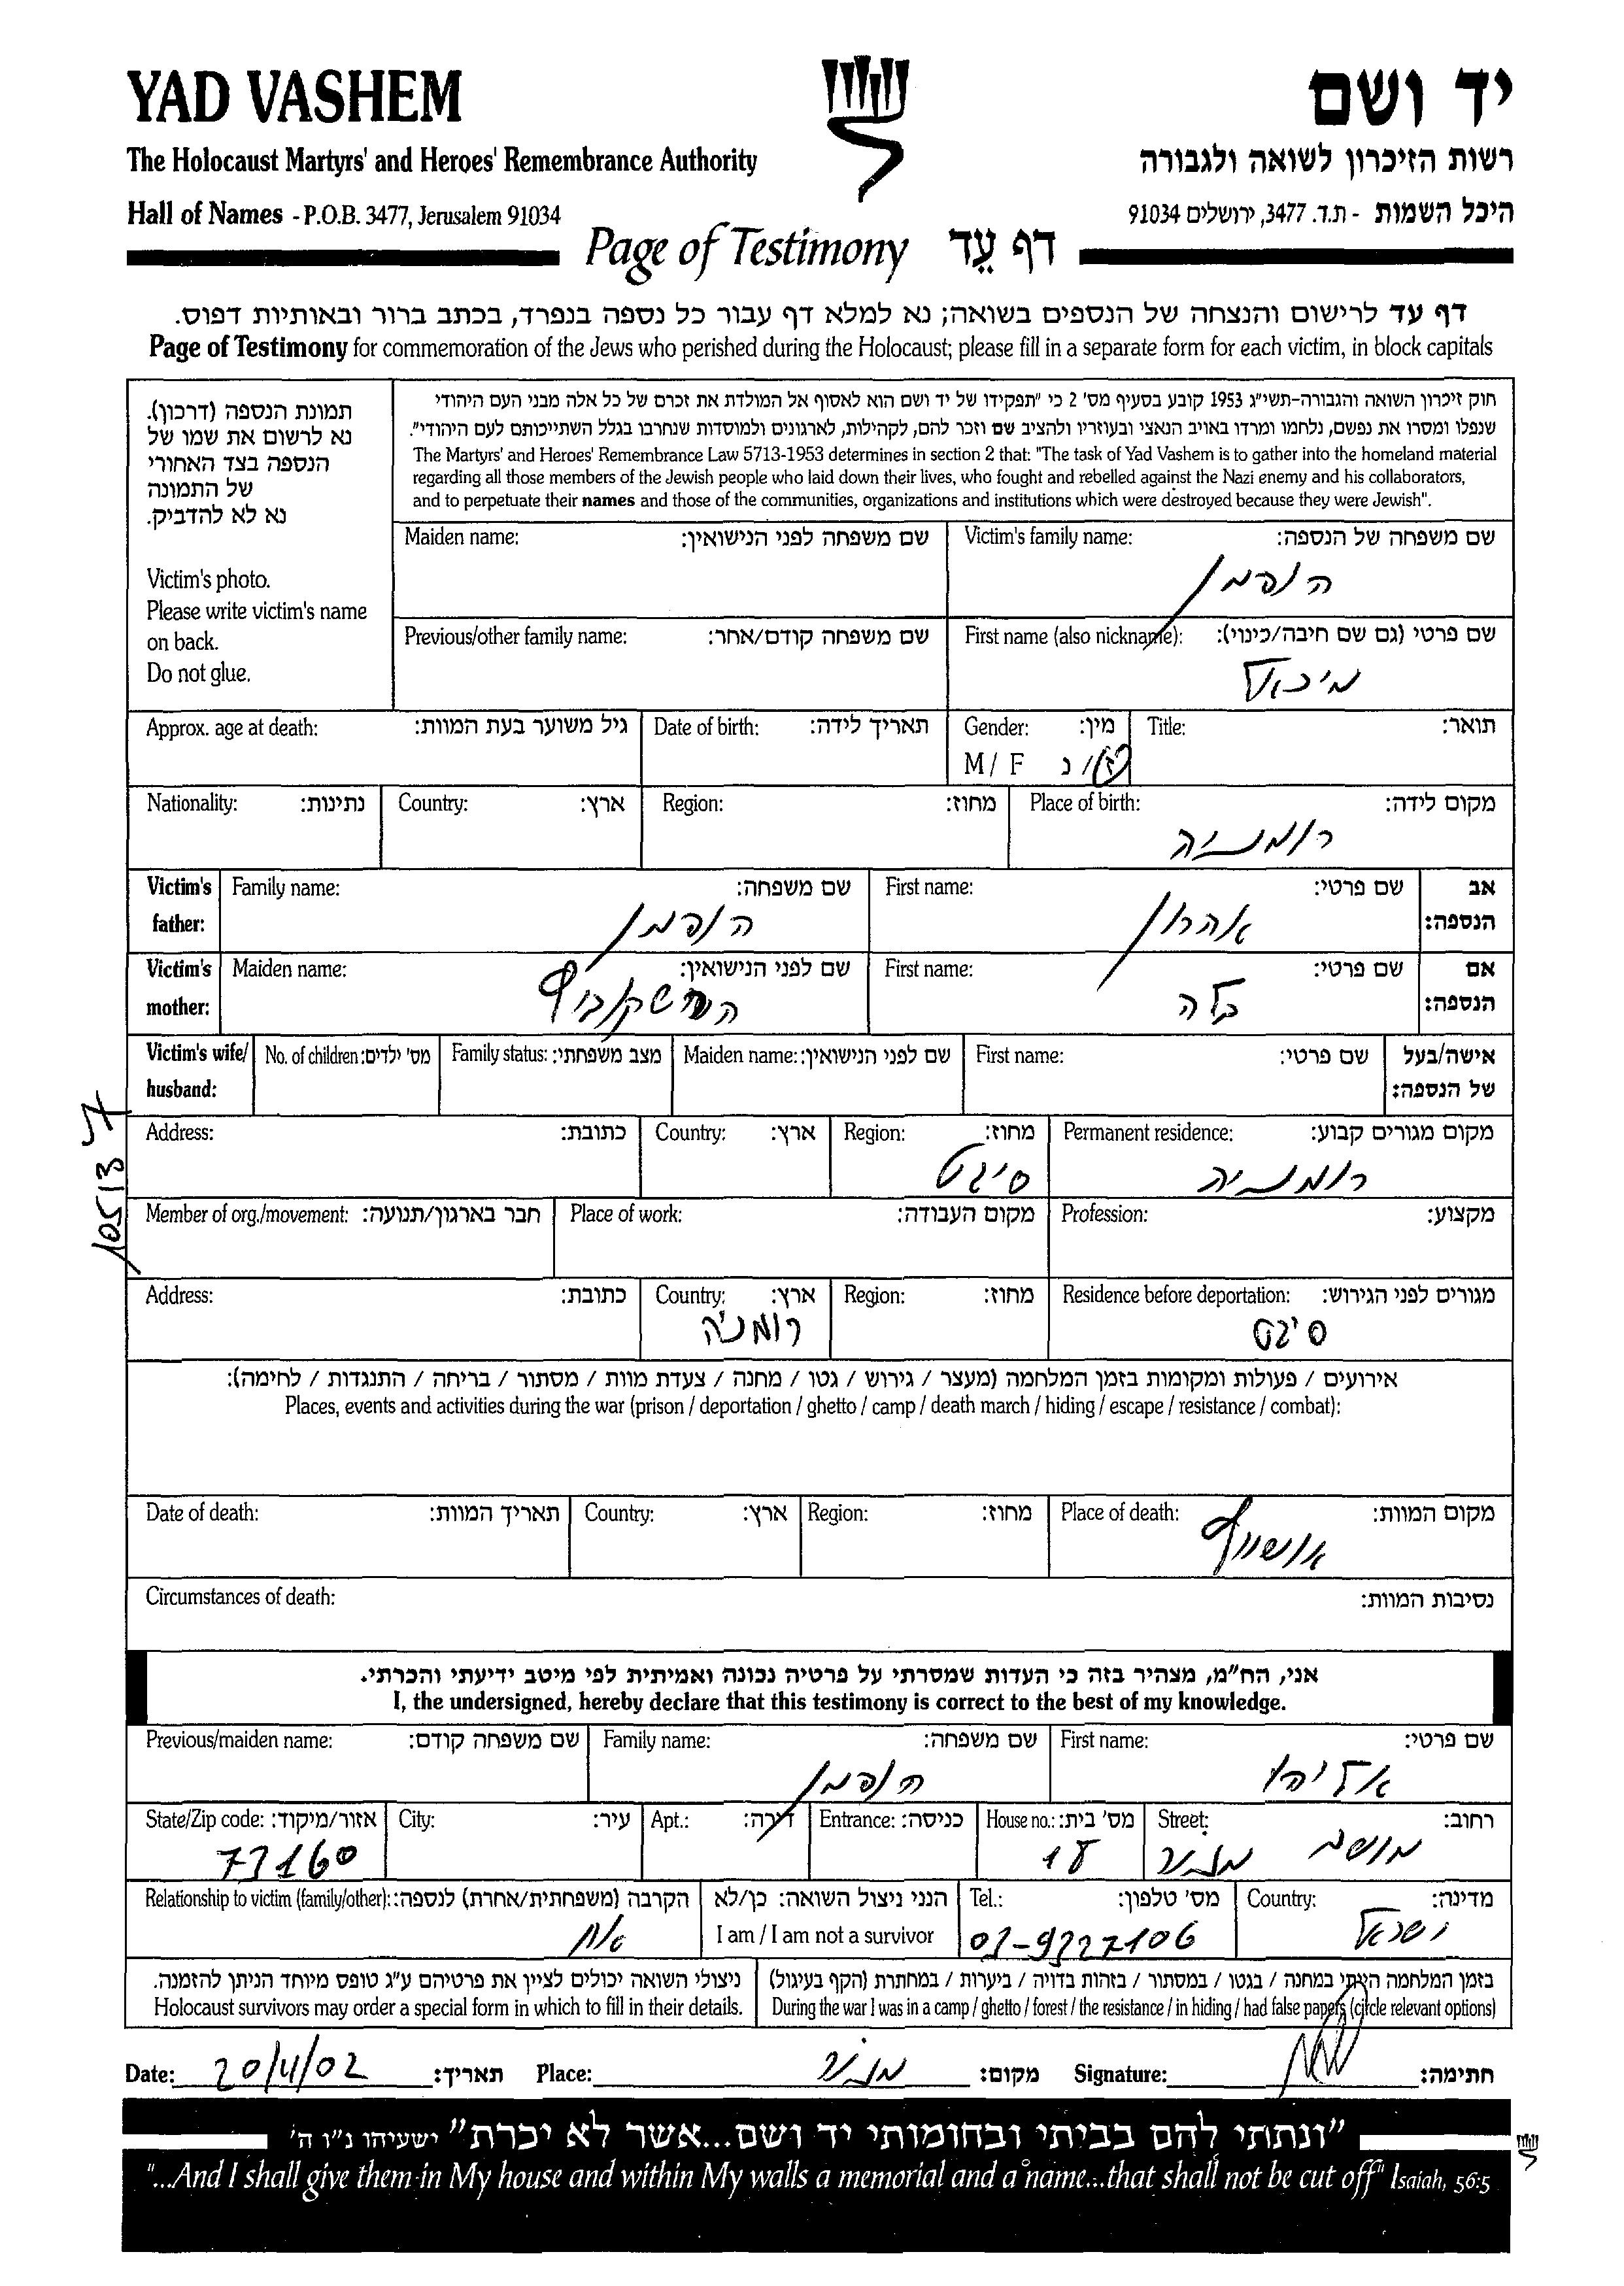 YAD VASHEM
יד ושם
The Holocaust Martyrs' and Heroes' Remembrance Authority
רשות הזיכרון לשואה ולגבורה
Hall of Names - P.O.B. 3477, Jerusalem 91034
היכל השמות - ת.ד. 3477, ירושלים 91034
Page of Testimony דף עֵד
דף עד לרישום והנצחה של הנספים בשואה; נא למלא דף עבור כל נספה בנפרד, בכתב ברור ובאותיות דפוס.
Page of Testimony for commemoration of the Jews who perished during the Holocaust; please fill in a separate form for each victim, in block capitals
תמונת הנספה (דרכון).
נא לרשום את שמו של
הנספה בצד האחורי
של התמונה
נא לא להדביק.
Victim's photo.
Please write victim's name
on back.
Do not glue.
חוק זיכרון השואה והגבורה-תשי"ג 1953 קובע בסעיף מס' 2 כי "תפקידו של יד ושם הוא לאסוף אל המולדת את זכרם של כל אלה מבני העם היהודי
שנפלו ומסרו את נפשם, נלחמו ומרדו באויב הנאצי ובעוזריו ולהציב שם וזכר להם, לקהילות, לארגונים ולמוסדות שנחרבו בגלל השתייכותם לעם היהודי".
The Martyrs' and Heroes' Remembrance Law 5713-1953 determines in section 2 that: "The task of Yad Vashem is to gather into the homeland material
regarding all those members of the Jewish people who laid down their lives, who fought and rebelled against the Nazi enemy and his collaborators,
and to perpetuate their names and those of the communities, organizations and institutions which were destroyed because they were Jewish".
Maiden name: שם משפחה לפני הנישואין: Victim's family name: שם משפחה של הנספה:
הופמן
Previous/other family name: שם משפחה קודם/אחר: First name (also nickname): שם פרטי (גם שם חיבה/כינוי):
מיכאל
Approx. age at death: גיל משוער בעת המוות: Date of birth: תאריך לידה: Gender: מין: Title: תואר:
M / F ז / נ
Nationality: נתינות: Country: ארץ: Region: מחוז: Place of birth: מקום לידה:
רומניה
Victim's father: Family name: שם משפחה: First name: שם פרטי: אב הנספה:
הופמן אהרון
Victim's mother: Maiden name: שם לפני הנישואין: First name: שם פרטי: אם הנספה:
בלה
Victim's wife/ husband: No. of children: מס' ילדים: Family status: מצב משפחתי: Maiden name: שם לפני הנישואין: First name: שם פרטי: אישה/בעל של הנספה:
Address: כתובת: Country: ארץ: Region: מחוז: Permanent residence: מקום מגורים קבוע:
סיגט רומניה
10513
Member of org./movement: חבר בארגון/תנועה: Place of work: מקום העבודה: Profession: מקצוע:
Address: כתובת: Country: ארץ: Region: מחוז: Residence before deportation: מגורים לפני הגירוש:
רומניה סיגט
אירועים / פעולות ומקומות בזמן המלחמה (מעצר / גירוש / גטו / מחנה / צעדת מוות / מסתור / בריחה / התנגדות / לחימה):
Places, events and activities during the war (prison / deportation / ghetto / camp / death march / hiding / escape / resistance / combat):
Date of death: תאריך המוות: Country: ארץ: Region: מחוז: Place of death: מקום המוות:
אושוויץ
Circumstances of death: נסיבות המוות:
אני, הח"מ, מצהיר בזה כי העדות שמסרתי על פרטיה נכונה ואמיתית לפי מיטב ידיעתי והכרתי.
I, the undersigned, hereby declare that this testimony is correct to the best of my knowledge.
Previous/maiden name: שם משפחה קודם: Family name: שם משפחה: First name: שם פרטי:
הופמן אליהו
State/Zip code: אזור/מיקוד: City: עיר: Apt.: דירה: Entrance: כניסה: House no.: מס' בית: Street: רחוב:
73160 18 מושב מגשי
Relationship to victim (family/other): הקרבה (משפחתית/אחרת) לנספה: הנני ניצול השואה: כן/לא Tel.: מס' טלפון: Country: מדינה:
אח I am / I am not a survivor 03-9327106 ישראל
ניצולי השואה יכולים לציין את פרטיהם ע"ג טופס מיוחד הניתן להזמנה.
Holocaust survivors may order a special form in which to fill in their details.
בזמן המלחמה הייתי במחנה / בגטו / במסתור / בזהות בדויה / ביערות / במחתרת (הקף בעיגול)
During the war I was in a camp / ghetto / forest / the resistance / in hiding / had false papers (circle relevant options)
Date: 20/4/02 תאריך: Place: מקום: Signature: חתימה:
"ונתתי להם בביתי ובחומותי יד ושם...אשר לא יכרת" ישעיהו נ"ו ה'
"...And I shall give them in My house and within My walls a memorial and a name...that shall not be cut off" Isaiah, 56:5